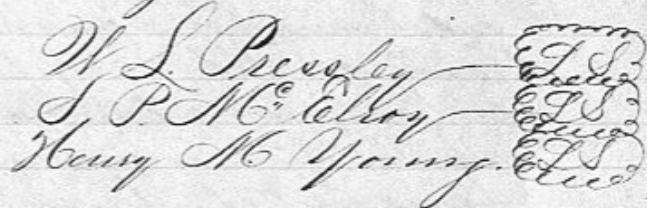 W L Pressley L S
S P McElroy L S
Henry M Young. L S